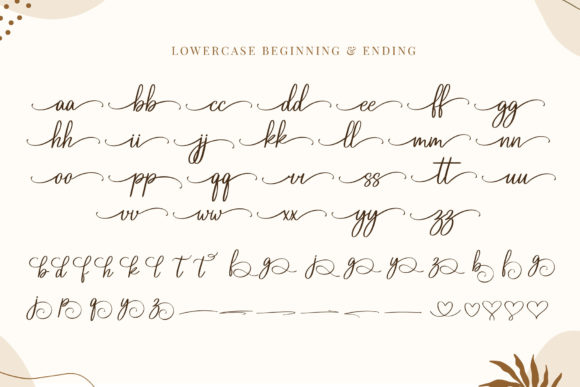 LOWERCASE BEGINNING & ENDING
aa bb cc dd ee ff gg
hh ii jj kk ll mm nn
oo pp qq rr ss tt uu
vv ww xx yy zz
b d f h k l t t g j g y z b g
j p q y z